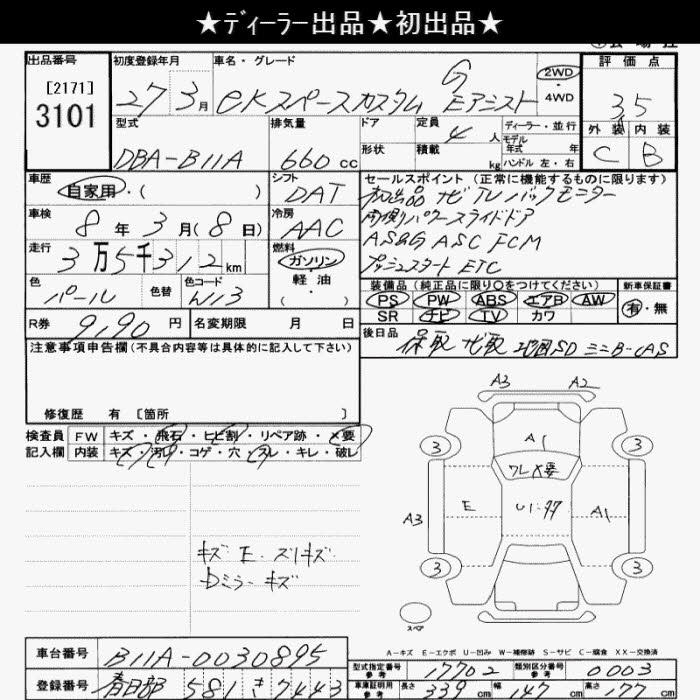 ★ディーラー出品★初出品★
出品番号 初度登録年月 車名・グレード 評価点
[2171]
3101
27 3月 eKスペースカスタム G Eアシスト 2WD・4WD 3.5
型式 排気量 ドア 定員 ディーラー・並行 外装 内装
DBA-B11A 660cc 形状 積載 4人 kg モデル年式 年 ハンドル 左・右 C B
車歴 自家用・( ) シフト DAT
セールスポイント(正常に機能するものに限ります)
初出品 ナビ TV バックモニター
車検 8年3月(8日) 冷房 AAC
両側パワースライドドア
走行 3万5千312km 燃料 ガソリン・軽油・( )
AS&G ASC FCM
プッシュスタート ETC
色 パール 色替 色コード W13
装備品(純正品に限り○をつけてください) 新車保証書
PS PW ABS エアB AW 有・無
SR ナビ TV カワ
R券 9,190円 名変期限 月 日
後日品 保取 ナビ取 地図SD
注意事項申告欄(不具合内容等は具体的に記入して下さい)
修復歴 有 [箇所 ]
検査員記入欄 FW キズ・飛石・ヒビ割・リペア跡・×要
内装 キズ・汚れ・コゲ・穴・スレ・キレ・破レ
A3 A2
3 A1 3
ワレ×要
A3 E A1
3 3
キズ E. スリキズ
Dミラーキズ
スペア
A-キズ E-エクボ U-凹み W-補修跡 S-サビ C-腐食 XX-交換済
車台番号 B11A-0030895
型式指定番号 参考 17702 類別区分番号 参考 0003
登録番号 春日部 581 き 7443
車庫証明用 参考 長さ 339cm 幅 147cm 高さ 177cm